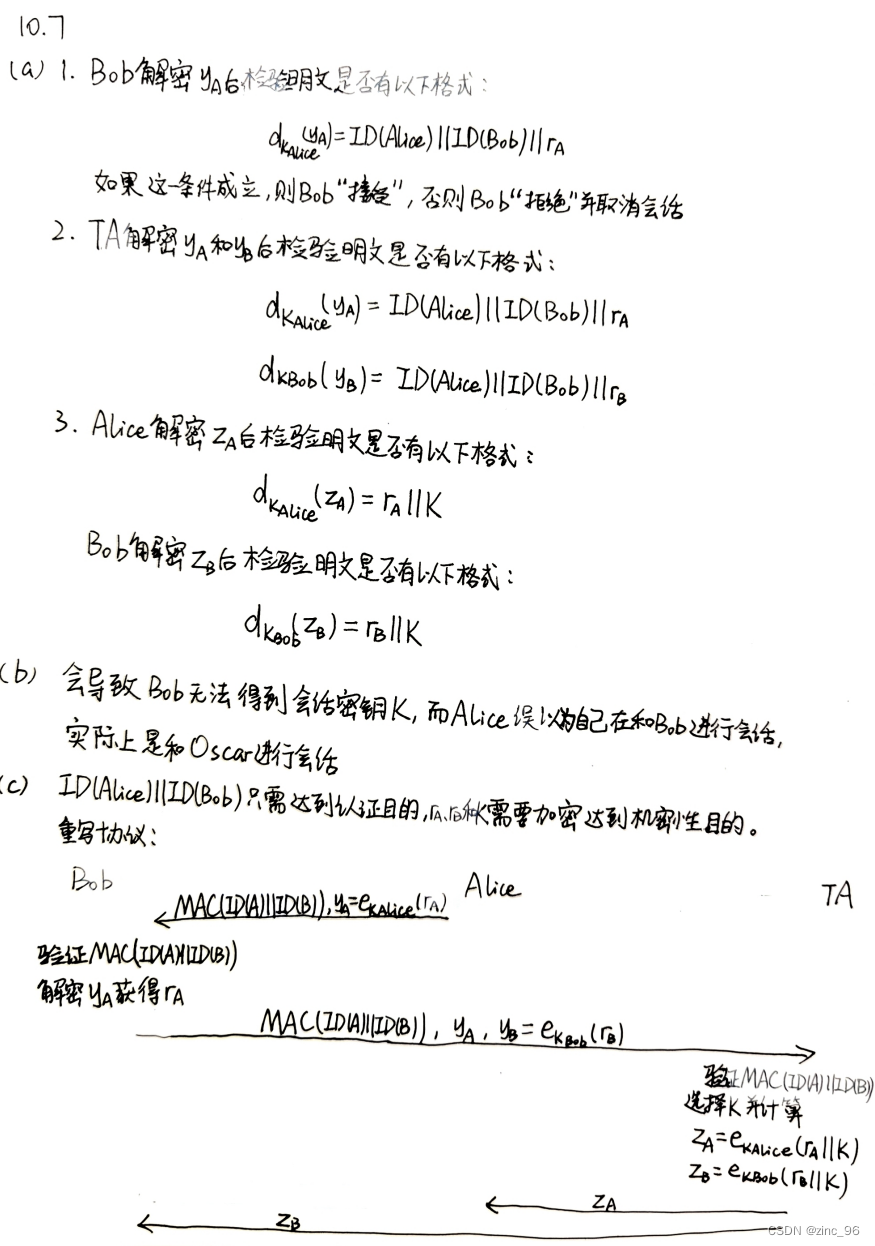 10.7
(a) 1. Bob解密yA后检验明文是否有以下格式：
dKAlice(yA)=ID(Alice)||ID(Bob)||rA
如果这一条件成立,则Bob“接受”，否则Bob“拒绝”并取消会话
2. TA解密yA和yB后检验明文是否有以下格式：
dKAlice(yA)= ID(Alice)||ID(Bob)||rA
dKBob(yB)= ID(Alice)||ID(Bob)||rB
3. Alice解密zA后检验明文是否有以下格式：
dKAlice(zA)=rA||K
Bob解密zB后检验明文是否有以下格式：
dKBob(zB)=rB||K
(b) 会导致Bob无法得到会话密钥K,而Alice误以为自己在和Bob进行会话,
实际上是和Oscar进行会话
(c) ID(Alice)||ID(Bob)只需达到认证目的,rA、rB和K需要加密达到机密性目的。
重写协议：
Bob Alice TA
MAC(ID(A)||ID(B)),yA=eKAlice(rA)
验证MAC(ID(A)||ID(B))
解密yA获得rA
MAC(ID(A)||ID(B)), yA, yB=eKBob(rB)
验证MAC(ID(A)||ID(B))
选择K并计算
zA=eKAlice(rA||K)
zB=eKBob(rB||K)
zA
zB
CSDN @zinc_96